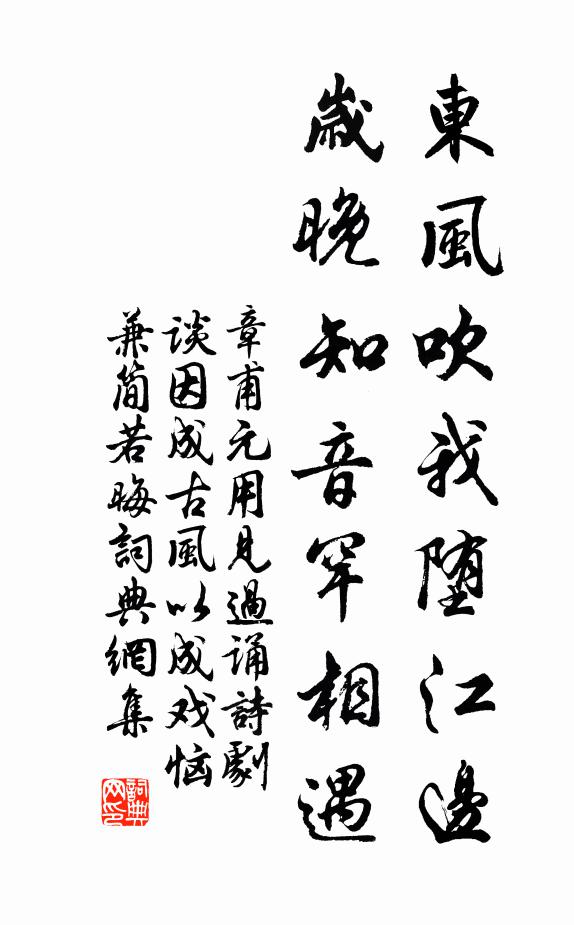 東風吹我堕江邊
歲晚知音罕相遇
章甫元用見過誦詩劇
谈因成古風以成戏恼
兼简若晦詞典網集
詞典網印